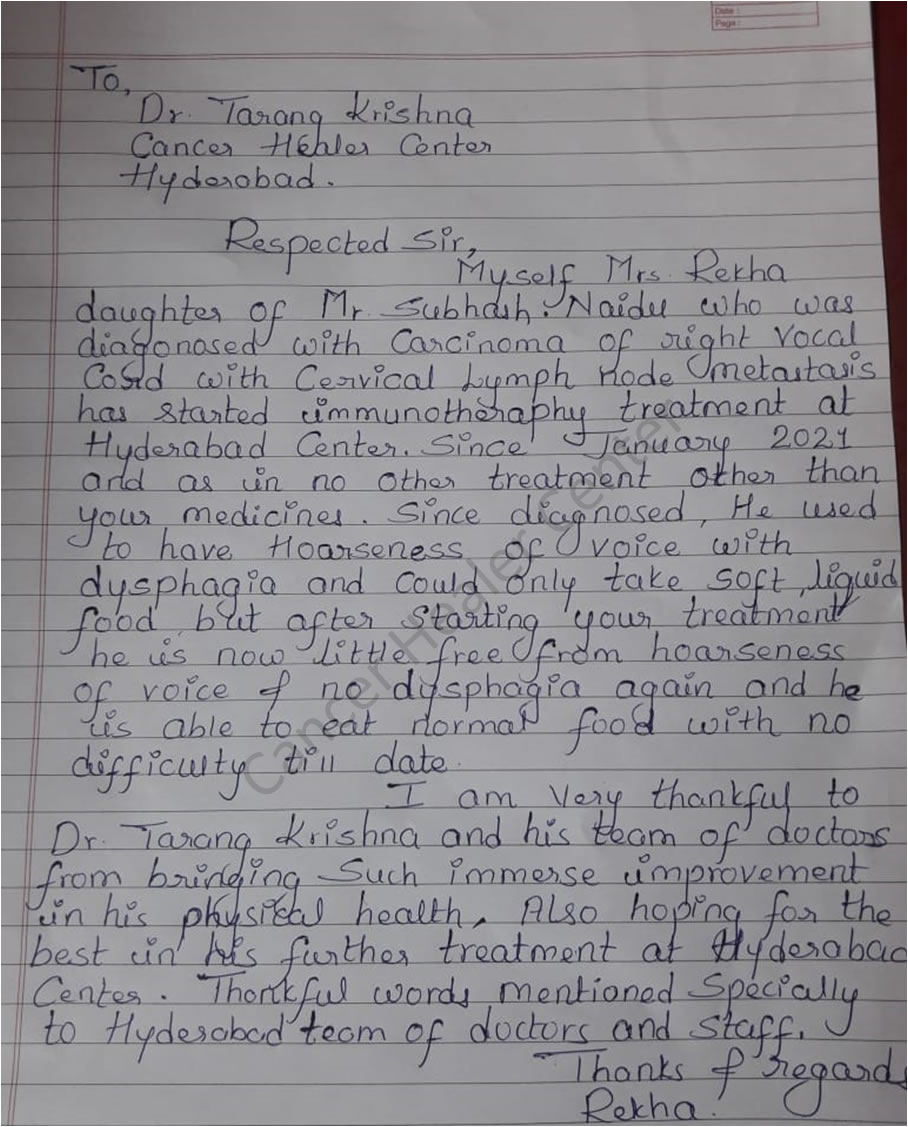 Date :
Page :
To,
Dr. Tarang Krishna
Cancer Healer Center
Hyderobad.
Respected Sir,
Myself Mrs. Rekha
daughter of Mr. Subhash. Naidu who was
diagonosed with Carcinoma of right Vocal
Cord with Cervical Lymph node metastasis
has started immunotheraphy treatment at
Hyderabad Center. Since January 2021
and as in no other treatment other than
your medicines. Since diagnosed, He used
to have Hoarseness of voice with
dysphagia and could only take soft, liquid
food but after starting your treatment
he is now little free from hoarseness
of voice & no dysphagia again and he
is able to eat normal food with no
difficulty till date.
I am very thankful to
Dr. Tarang Krishna and his team of doctors
from bringing such immerse improvement
in his physical health, Also hoping for the
best in his further treatment at Hyderabad
Center. Thankful words mentioned Specially
to Hyderabad team of doctors and staff.
Thanks & regards
Rekha.
Cancer Healer Center